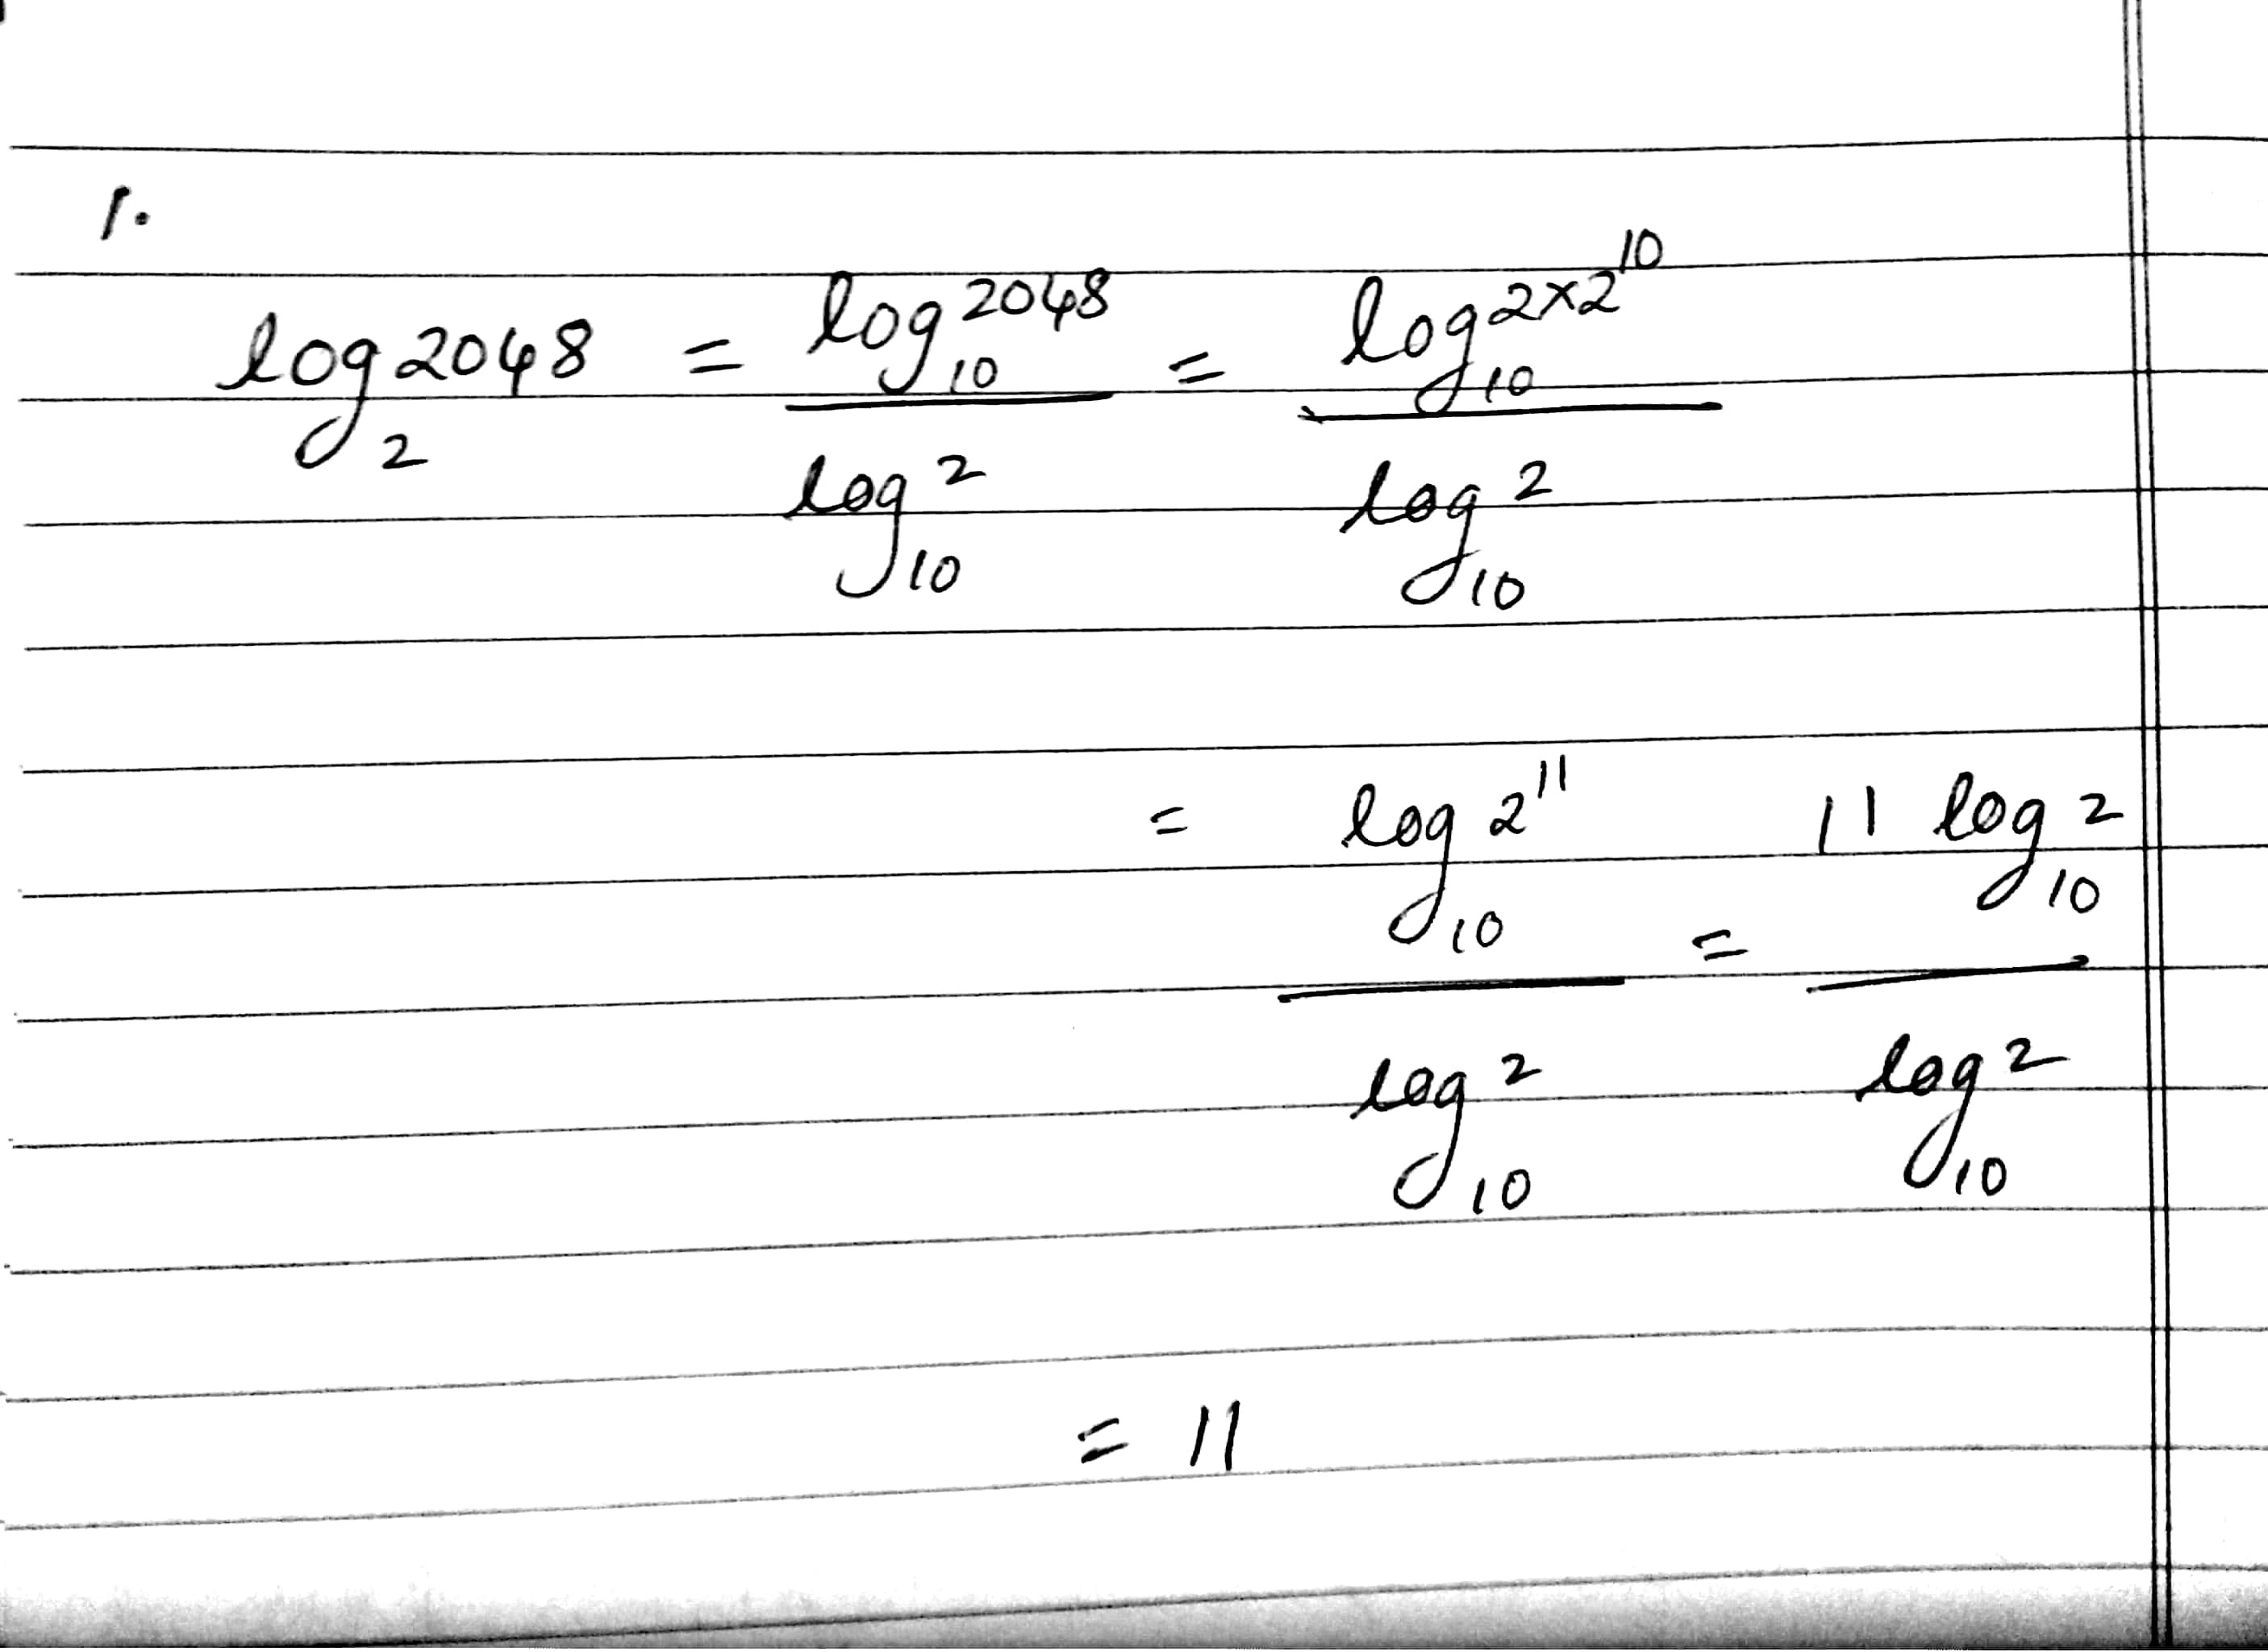 1.
log₂ 2048 = log₁₀ 2048 / log₁₀ 2 = log₁₀ 2×2¹⁰ / log₁₀ 2
= log₁₀ 2¹¹ / log₁₀ 2 = 11 log₁₀ 2 / log₁₀ 2
= 11